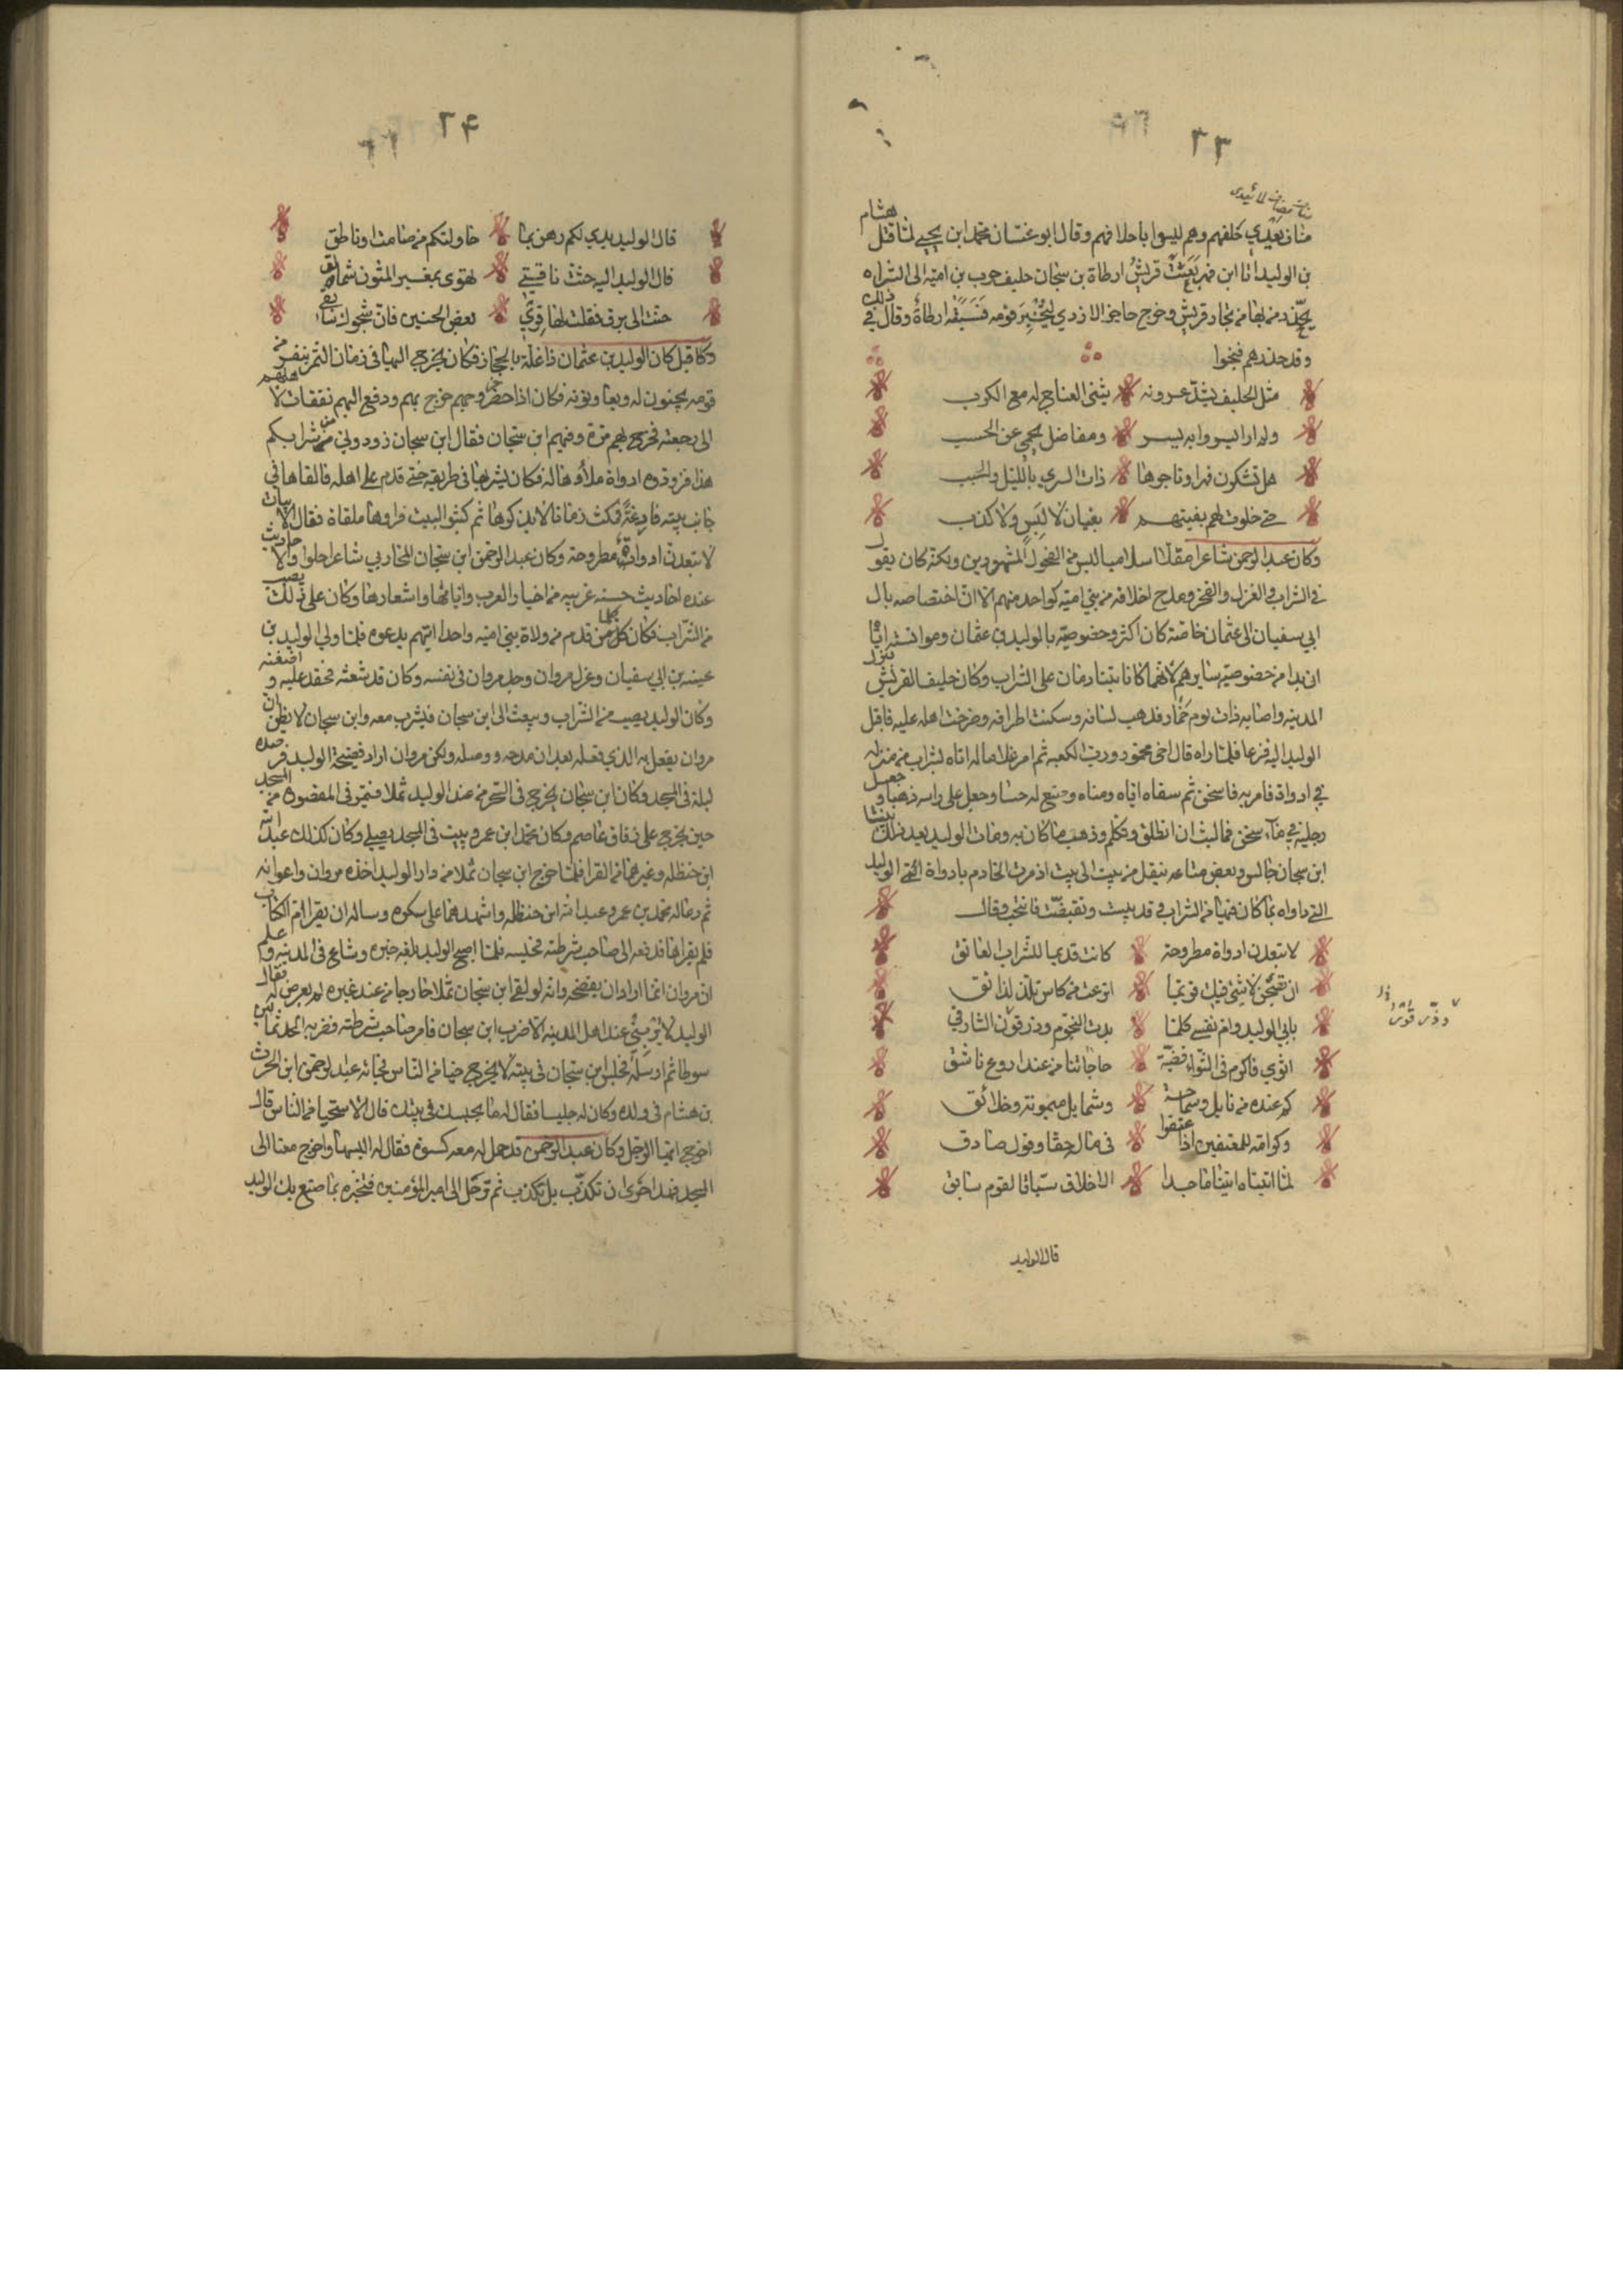 ٢٣
مناف بعدي خلفهم وهم ليسوا باحلافهم وقال ابو غسان محمد ابن يحيى لما قتل هشام
بن الوليد ابا ابن فهر بعثت قريش ارطاة بن سيحان حليف حرب بن امية الى الشراه
يحذر من بها من تجار قريش وخرج حاجز الازدي ليخبر قومه فسبقه ارطاة وقال في ذلك
وقد حذرهم فنجوا
مثل الحليف يشد عرونه يثني العناج له مع الكرب
ولد اراييسر وابه يسر ومفاضل يحمي عن الحسب
هل تشكون فهر وتاجرها ذات السري بالليل والخبب
حتى خلوت لهم بفيتهم بغيان لا لبس ولا كذب
وكان عبد الرحمن شاعرا مقلا اسلاميا ليس من الفحول المشهورين ولكنه كان يقول
في الشراب والغزل والفخر ومدح احلافه من بني امية كواحد منهم الا ان اختصاصه بال
ابي سفيان الى عثمان خاصة كان اكثر وخصوصيته بالوليد بن عثمان وموانسته اياه
ازيد من خصوصيته بسايرهم لانهما كانا يتنادمان على الشراب وكان حليف القريش
المدينه واصابه ذات يوم خمار فذهب لسانه وسكنت اطرافه وصرخت اهله عليه فاقبل
الوليد اليه فزعا فلما راه قال اخي مخمور ورب الكعبه ثم امر غلاما له اتاه بشراب من منزله
في ادواة فامر به فاسخن ثم سقاه اياه وقياه وصنع له حسا وجعل على راسه دهنا وجعل
رجليه في ماء سخن فما لبث ان انطلق وتكلم وذهب ما كان به ومات الوليد بعد ذلك فبينا
ابن سيحان جالس وبعض متاعه ينقل من بيت الى بيت اذ مرت الخادم باداوة الوليد
التي داواه بما كان فيها من الشراب وقد يبست وتقبضت فانتحب وقال
لا تبعدن اداوة مطروحة كانت قديما للشراب العاتق
ان تصبحي لا شي فيك فربما اترعت من كاس تلذ لذائق
بابي الوليد وام نفسي كلما بدت النجوم وذر قرن الشارق
اثوي فاكرم في الثواء وقضيت حاجاتنا من عند اروع باسق
كم عنده من نايل وسماحة وشمايل ميمونة وخلائق
وكرامة للمعتفين اذا اعتفوا في ماله حقا وقول صادق
لما اتيناه اتينا ماجدا الاخلاق سباقا لقوم سابق
قال الوليد
٢۴
قال الوليد يدي لكم رهن بما حاولتكم من صامت او ناطق
قال الوليد اليه حثت ناقتي تهوى بمغبر المتون شمالق
حنت الى برق فقلت لها قري بعض الحنين فان شجوك شائقي
وكما قيل كان الوليد بن عثمان ذا غلة بالحجاز فكان يخرج اليها في زمان الثمر بنفر من
قومه يجنون له ويعاونونه فكان اذا حضر خروجهم خرج بهم ودفع اليهم نفقات لاهلهم
الى رجعته فخرج بهم مرة وفيهم ابن سيحان فقال ابن سيحان زودوني من شرابكم
هذا فزودوه اداوة ملاوها له فكان يشربها في طريقه حتى قدم على اهله فالقاها في
جانب بيته فارغة فمكث زمانا لا يذكرها ثم كنسوا البيت فراوها ملقاة فقال الابيات
لا تبعدن اداوة مطروحة وكان عبد الرحمن ابن سيحان المحاربي شاعرا حلوا والاحاديث
عنده احاديث حسنه غريبه من اخبار العرب وايامها واشعارها وكان على ذلك يصيب
من الشراب فكان كل من قدم من ولاة بني امية واحداثهم يدعوه فلما ولي الوليد بن
عيينه بن ابي سفيان وعزل مروان وجد مروان في نفسه وكان قد شعثه فحقد عليه واضغنه
وكان الوليد يصيب من الشراب ويبعث الى ابن سيحان فيشرب معه وابن سيحان لا يظن ان
مروان يفعل به الذي فعله بعد ان مدحه ووصله ولكن مروان اراد فضيحة الوليد فرصده
ليلة في المسجد وكان ابن سيحان يخرج في السحر من عند الوليد ثملا فيمر في المقصوره من المسجد
حين يخرج على زقاق عاصم وكان محمد ابن عمر ويبيت في المسجد يصلي وكان كذلك عبد الله
ابن حنظله وغيرهما من القرا فلما خرج ابن سيحان ثملا من دار الوليد اخذه مروان واعوانه
ثم دعا له محمد بن عمر وعبد الله ابن حنظله واشهدهما على سكره وساله ان يقرا ام الكتاب
فلم يقراها فدفعه الى صاحب شرطته فحبسه فلما اصبح الوليد بلغه خبره وشاع في المدينه وعلم
ان مروان انما اراد ان يفضحه وانه لو لقي ابن سيحان ثملا خارجا من عند غيره لم يعرض له فقال
الوليد لا يبريني عند اهل المدينه الا ضرب ابن سيحان فامر صاحب شرطته فضربه الحد ثمانين
سوطا ثم ارسله فجلس ابن سيحان في بيته لا يخرج حيا من الناس فجائه عبد الرحمن ابن الحرث
بن هشام في ولده وكان له جليسا فقال له ما يجبسك في بيتك قال الاستحيا من الناس قال
اخرج ايها الرجل وكان عبد الرحمن قد حمل له معه كسوة فقال له البسها واخرج معنا الى
المسجد فهذا احرى ان تكذب به مكذب ثم ترحل الى امير المؤمنين فتخبره بما صنع بك الوليد